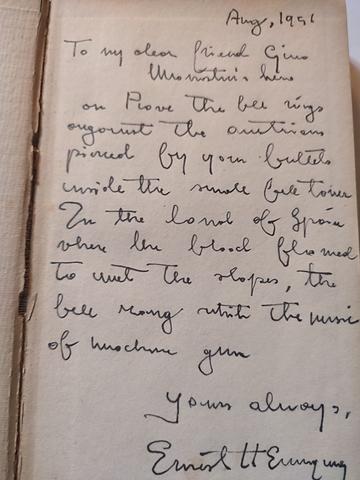 Aug, 1951
To my dear friend Gino
here
on Piave the bell rings
against the austrians
pierced by your bullets
inside the small bell tower
In the land of Spain
where the blood flowed
to wet the slopes, the
bell rang with the music
of machine gun
Yours always,
Ernest Hemingway